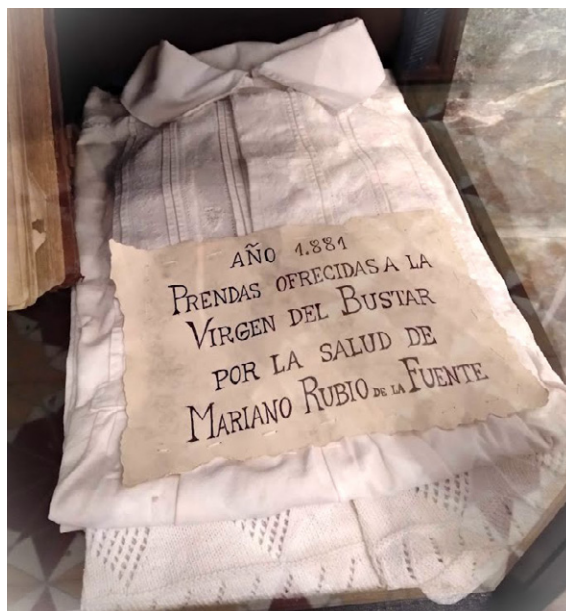 AÑO 1.881
PRENDAS OFRECIDAS A LA
VIRGEN DEL BUSTAR
POR LA SALUD DE
MARIANO RUBIO DE LA FUENTE